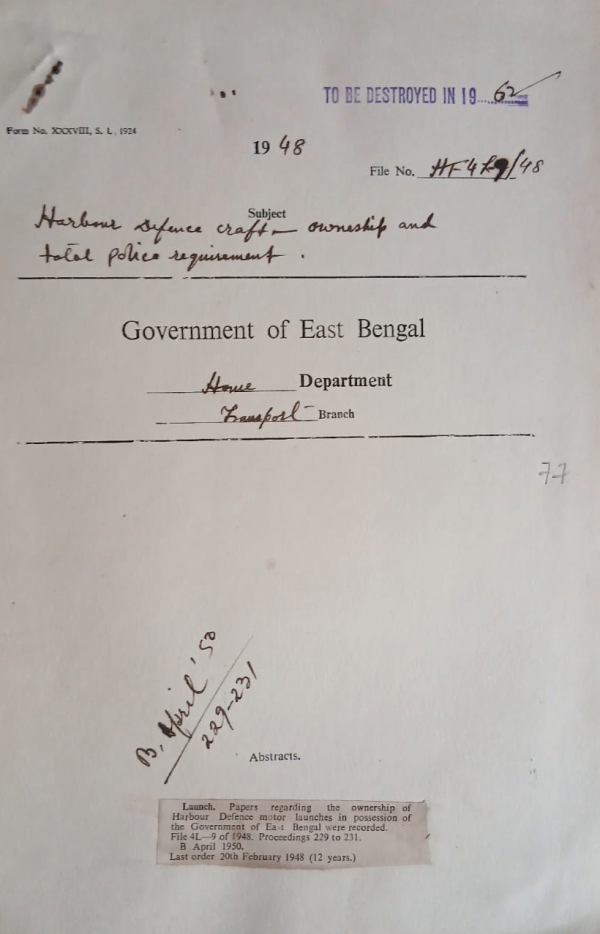 TO BE DESTROYED IN 19...62
Form No. XXXVIII, S. L. 1924
1948
File No. HF4L-9/48
Subject
Harbour Defence craft — ownership and
total police requirement.
Government of East Bengal
Home Department
Transport Branch
77
B, April '50
229-231
Abstracts.
Launch. Papers regarding the ownership of
Harbour Defence motor launches in possession of
the Government of East Bengal were recorded.
File 4L—9 of 1948. Proceedings 229 to 231.
B April 1950.
Last order 20th February 1948 (12 years.)